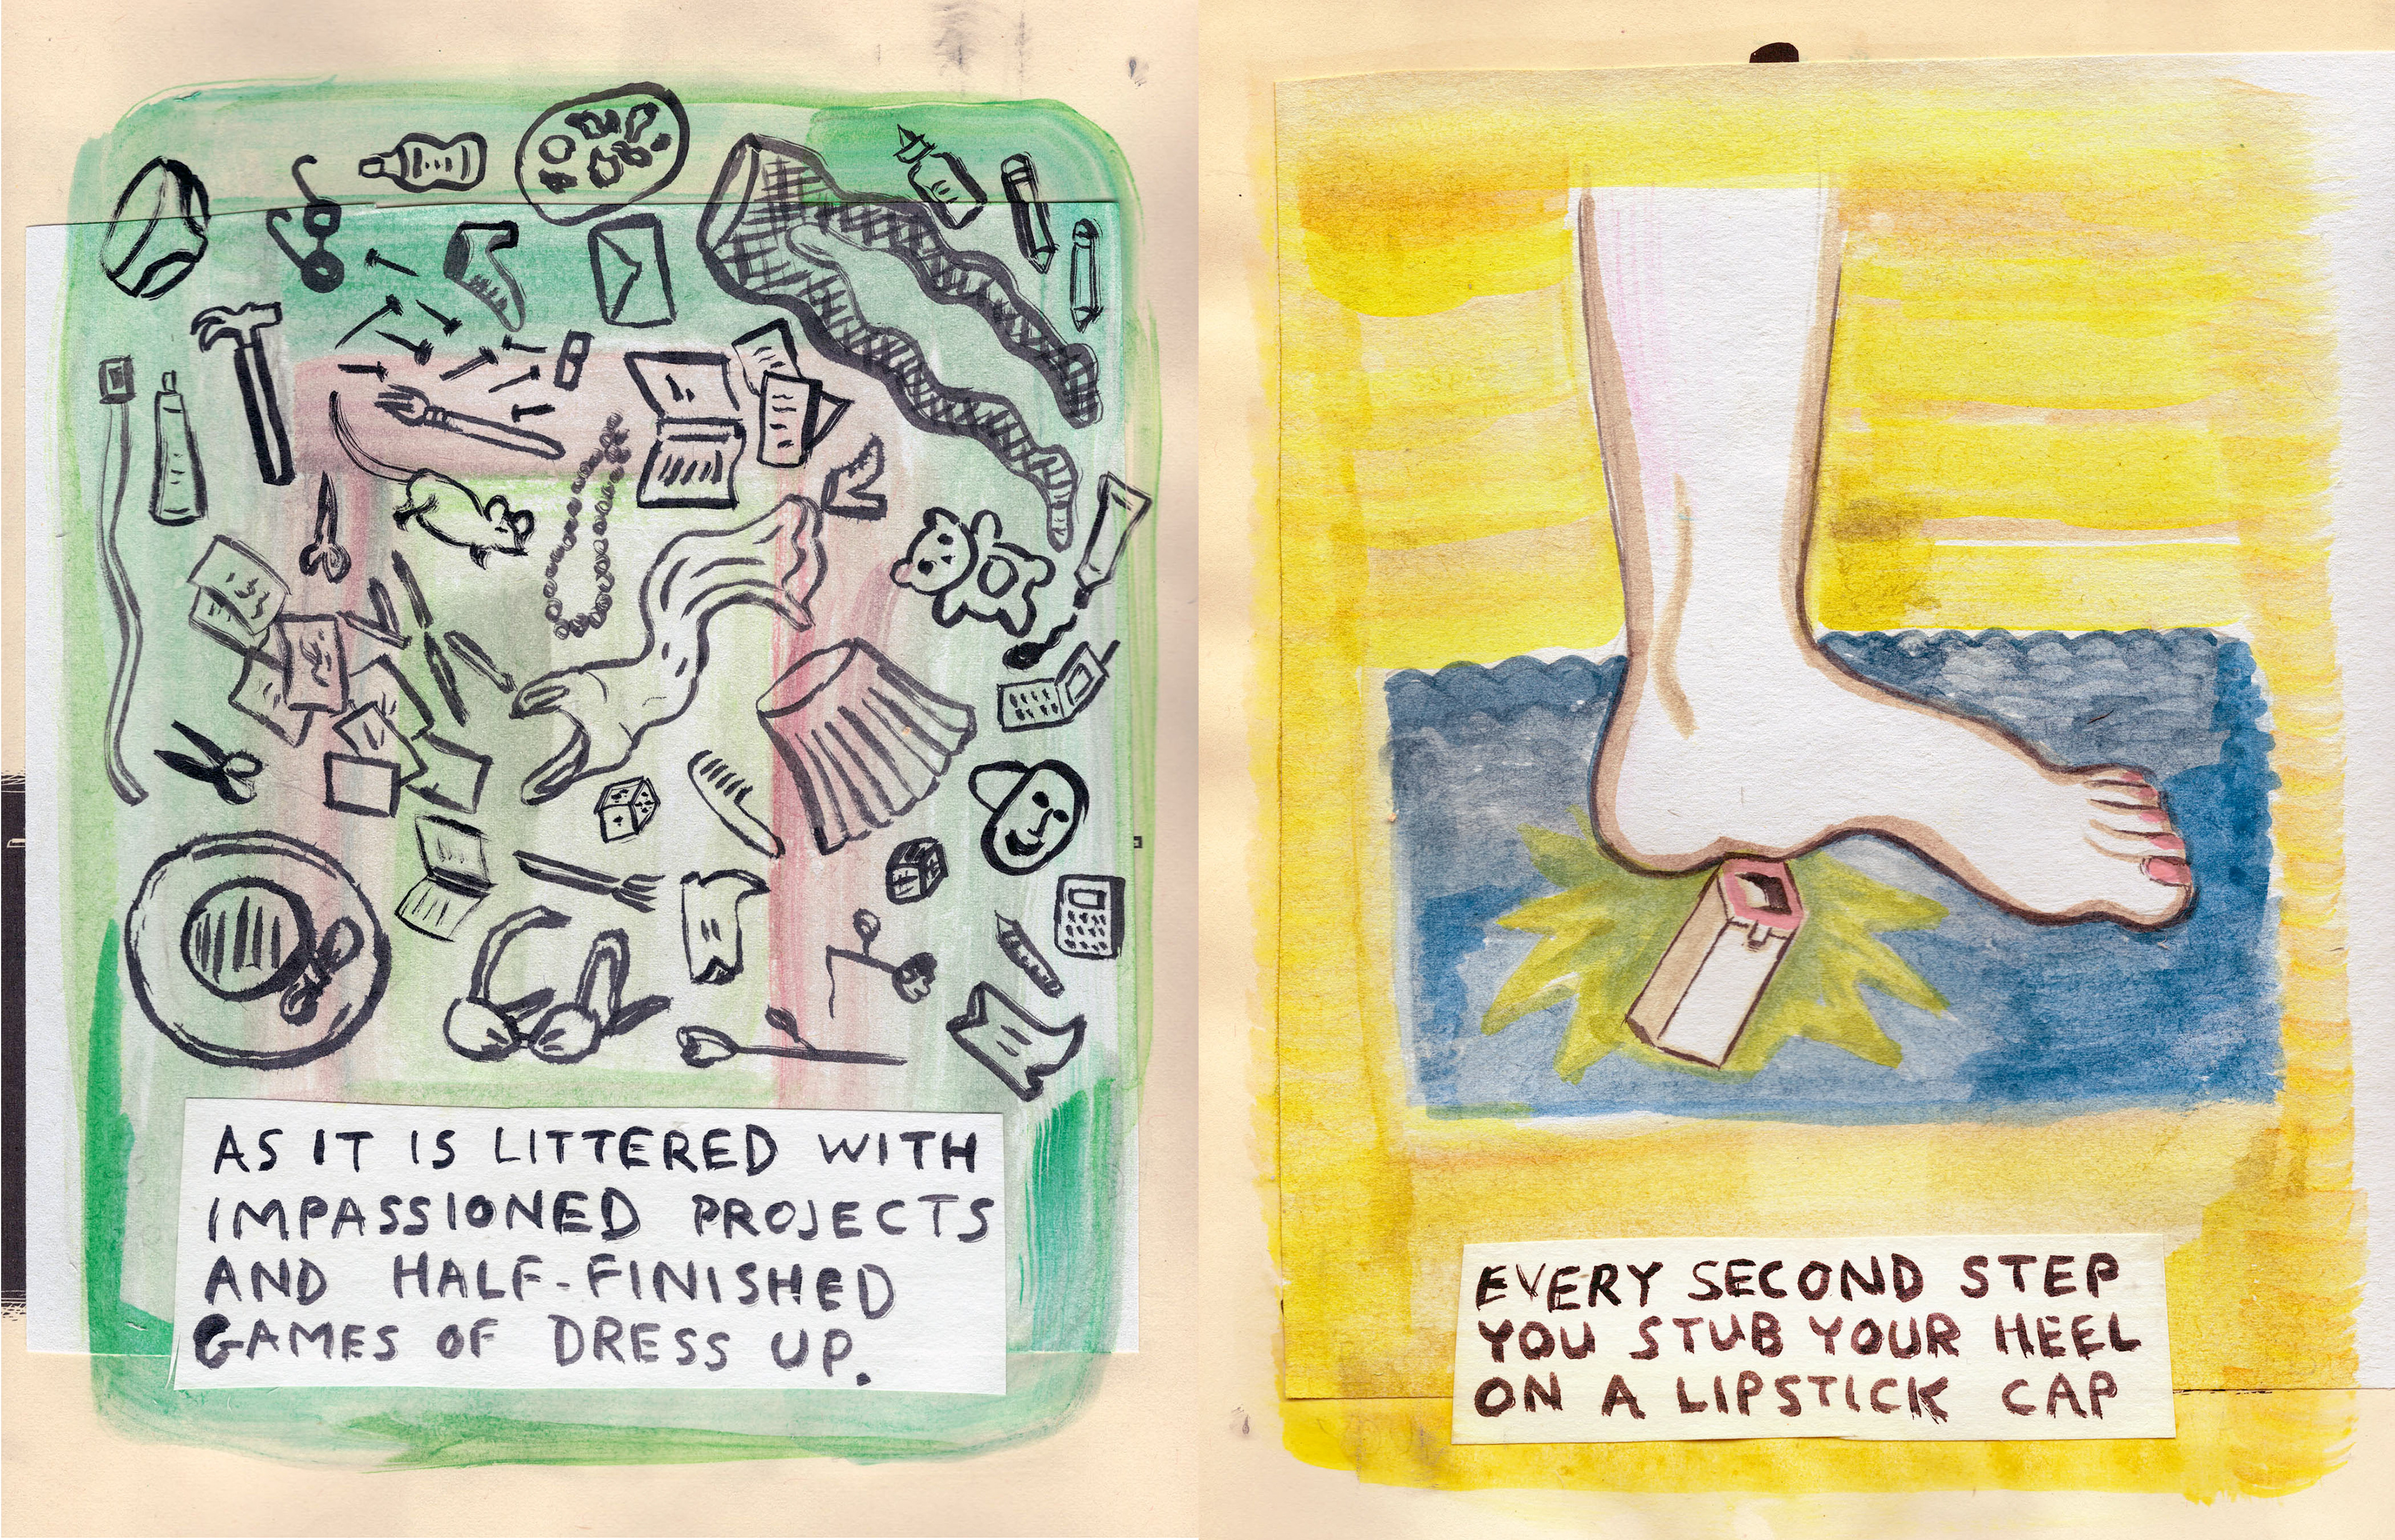 AS IT IS LITTERED WITH
IMPASSIONED PROJECTS
AND HALF-FINISHED
GAMES OF DRESS UP.
EVERY SECOND STEP
YOU STUB YOUR HEEL
ON A LIPSTICK CAP